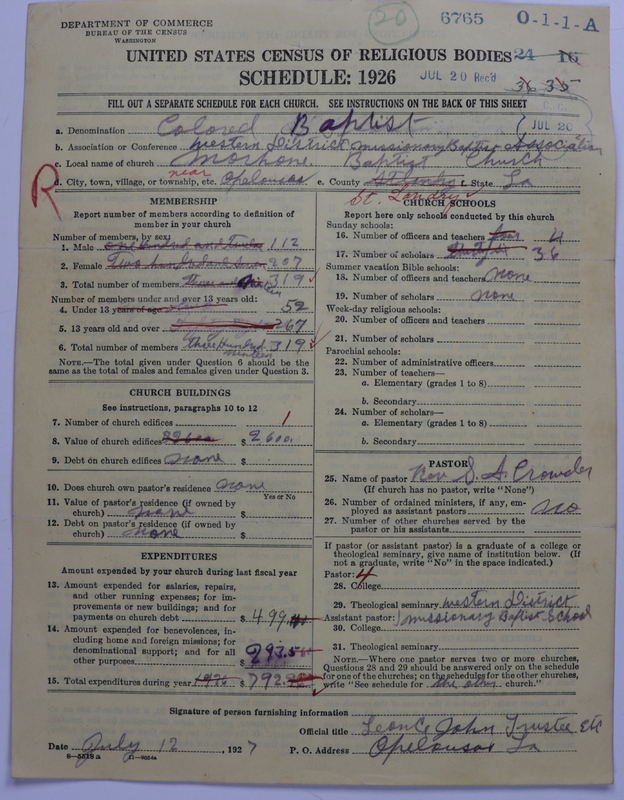 DEPARTMENT OF COMMERCE
BUREAU OF THE CENSUS
WASHINGTON
20
6765
0-1-1-A
UNITED STATES CENSUS OF RELIGIOUS BODIES
24 16
SCHEDULE: 1926
JUL 20 Rec'd
36 35
FILL OUT A SEPARATE SCHEDULE FOR EACH CHURCH. SEE INSTRUCTIONS ON THE BACK OF THIS SHEET
JUL 20
a. Denomination Colored Baptist
b. Association or Conference Western District Missionary Baptist Association
c. Local name of church Morhone Baptist Church
R
d. City, town, village, or township, etc. near Opelousas e. County St. Landry f. State La
MEMBERSHIP
Report number of members according to definition of member in your church
Number of members, by sex:
1. Male one hundred and twelve 112
2. Female 207
3. Total number of members 319
Number of members under and over 13 years old:
4. Under 13 years of age 52
5. 13 years old and over 267
6. Total number of members three Hundred nineteen 319
NOTE.—The total given under Question 6 should be the same as the total of males and females given under Question 3.
CHURCH BUILDINGS
See instructions, paragraphs 10 to 12
7. Number of church edifices 1
8. Value of church edifices $ 2600
9. Debt on church edifices none $
10. Does church own pastor's residence none
Yes or No
11. Value of pastor's residence (if owned by church) none $
12. Debt on pastor's residence (if owned by church) none $
EXPENDITURES
Amount expended by your church during last fiscal year
13. Amount expended for salaries, repairs, and other running expenses; for improvements or new buildings; and for payments on church debt $ 499
14. Amount expended for benevolences, including home and foreign missions; for denominational support; and for all other purposes $ 293.5
15. Total expenditures during year 1926 $ 792
CHURCH SCHOOLS
Report here only schools conducted by this church
Sunday schools:
16. Number of officers and teachers four 4
17. Number of scholars 36
Summer vacation Bible schools:
18. Number of officers and teachers none
19. Number of scholars none
Week-day religious schools:
20. Number of officers and teachers
21. Number of scholars
Parochial schools:
22. Number of administrative officers
23. Number of teachers—
a. Elementary (grades 1 to 8)
b. Secondary
24. Number of scholars—
a. Elementary (grades 1 to 8)
b. Secondary
PASTOR
25. Name of pastor Rev. S. A. Crowder
(If church has no pastor, write "None")
26. Number of ordained ministers, if any, employed as assistant pastors no
27. Number of other churches served by the pastor or his assistants
If pastor (or assistant pastor) is a graduate of a college or theological seminary, give name of institution below. (If not a graduate, write "No" in the space indicated.)
Pastor: 4
28. College
29. Theological seminary western District
Assistant pastor: missionary Baptist School
30. College
31. Theological seminary
NOTE.—Where one pastor serves two or more churches, Questions 28 and 29 should be answered only on the schedule for one of the churches; on the schedules for the other churches, write "See schedule for the other church."
Signature of person furnishing information
Official title Leonce John Trustee Etc
Date July 12, 1927
P. O. Address Opelousas La
8—5518 a